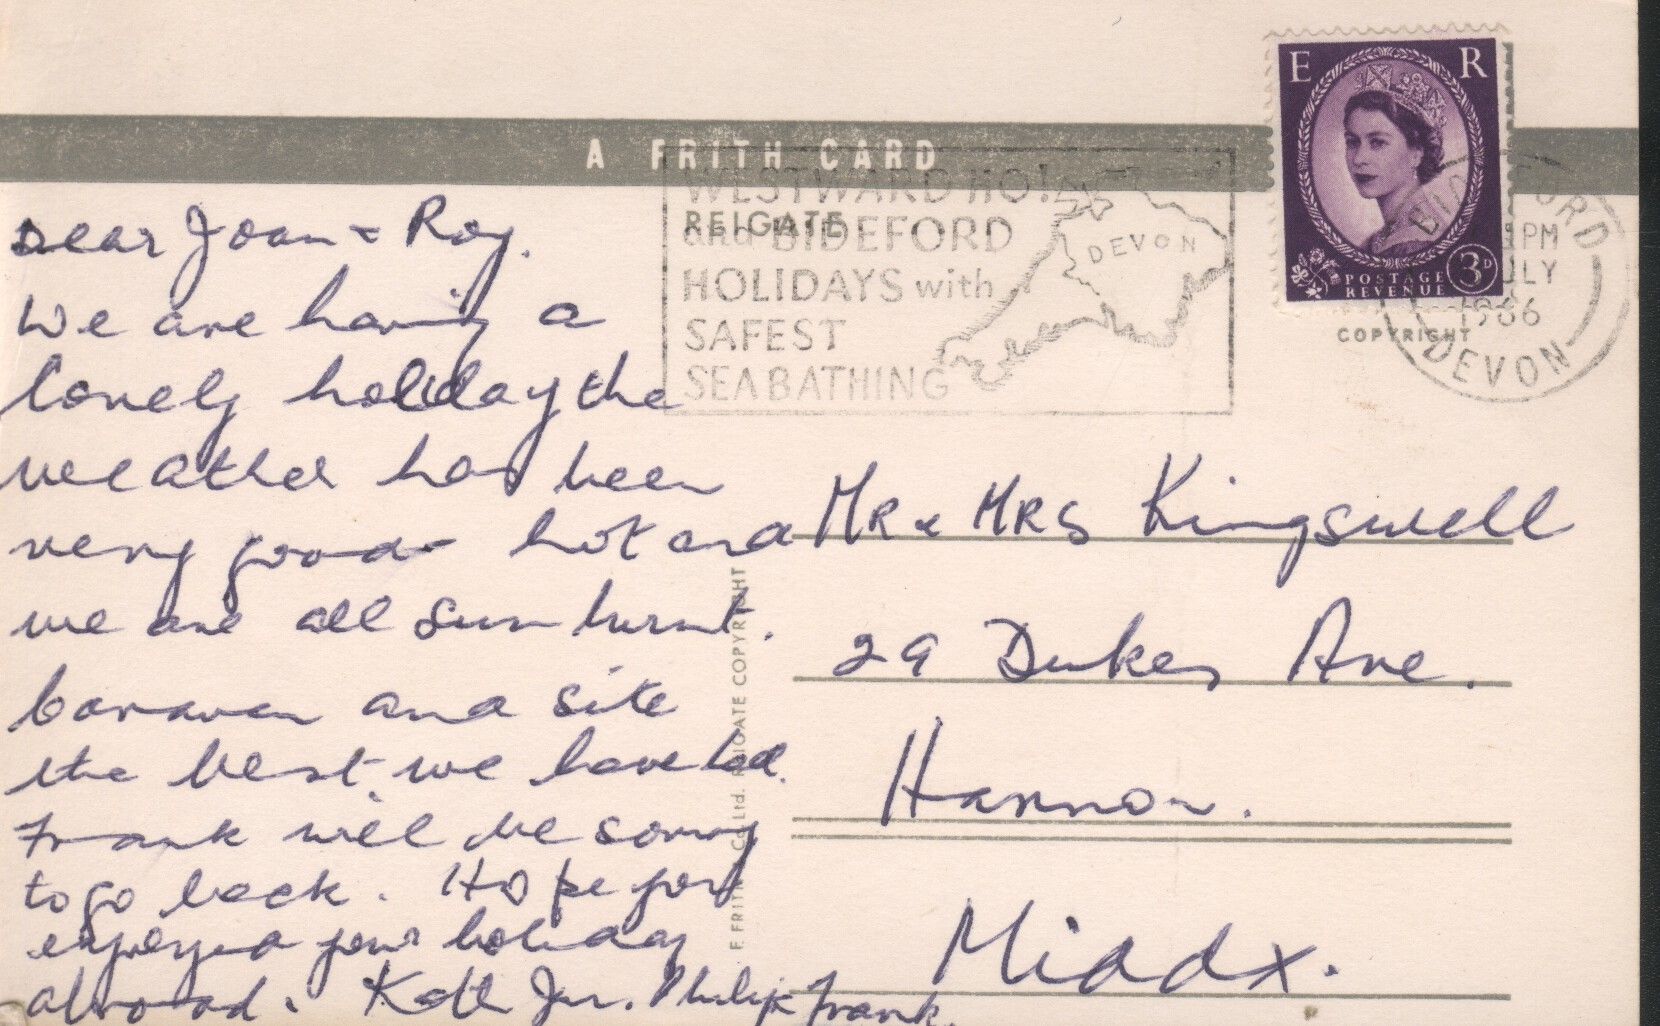 A FRITH CARD
REIGATE
WESTWARD HO!
and BIDEFORD
HOLIDAYS with
SAFEST
SEA BATHING
DEVON
E R
POSTAGE
REVENUE
3D
BIDEFORD
PM
LY
1966
DEVON
COPYRIGHT
Dear Joan & Roy.
We are having a
lovely holiday the
weather has been
very good hot and
we are all sun burnt.
Caravan and site
the best we have had.
Frank will be sorry
to go back. Hope you
enjoyed your holiday
abroad. Philip Frank.
Mr & MRS Kingswell
29 Dukes Ave.
Harrow.
Middx.
F. FRITH & Co. Ltd. REIGATE COPYRIGHT